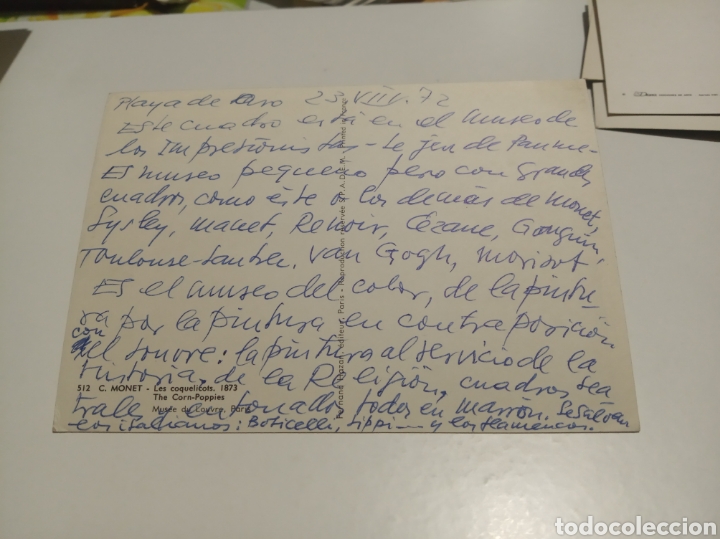 Playa de Aro 23 VIII. 72
Este cuadro está en el museo de
los Impresionistas - Le Jeu de Paume -
Es museo pequeño pero con grandes
cuadros, como éste o los demás de Monet,
Sysley, Manet, Renoir, Cézane, Gauguin,
Toulouse-Lautrec, Van Gogh, Morisot.
Es el museo del color, de la pintu-
ra por la pintura en contraposición
con
el Louvre: la pintura al servicio de la
Historia, de la Religión, cuadros tea
trales, entonados todos en marrón. Se salvan
los italianos: Boticelli, Lippi — y los flamencos.
512 C. MONET - Les coquelicots. 1873
The Corn-Poppies
Musée du Louvre, Paris
Fernand Hazan, éditeur, Paris - Reproduction réservée S.P.A.D.E.M. - Printed in France
todocoleccion